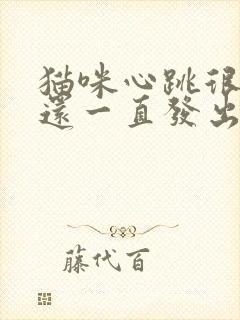 猫咪心跳很
還一直發出
藤代百